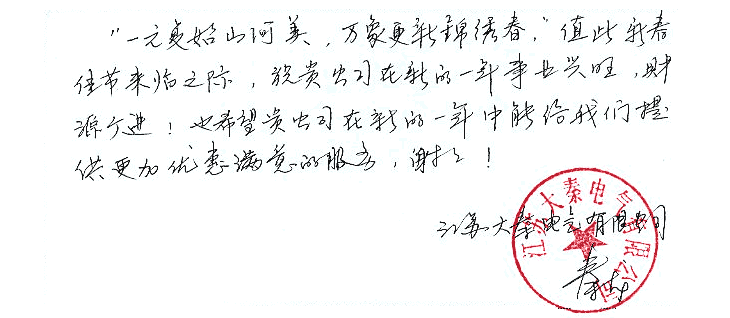 “一元复始山河美，万象更新锦绣春，”值此新春
佳节来临之际，祝贵公司在新的一年事业兴旺，财
源广进！也希望贵公司在新的一年中能给我们提
供更加优惠满意的服务，谢谢！
江苏大秦电气有限公司
江苏大秦电气有限公司